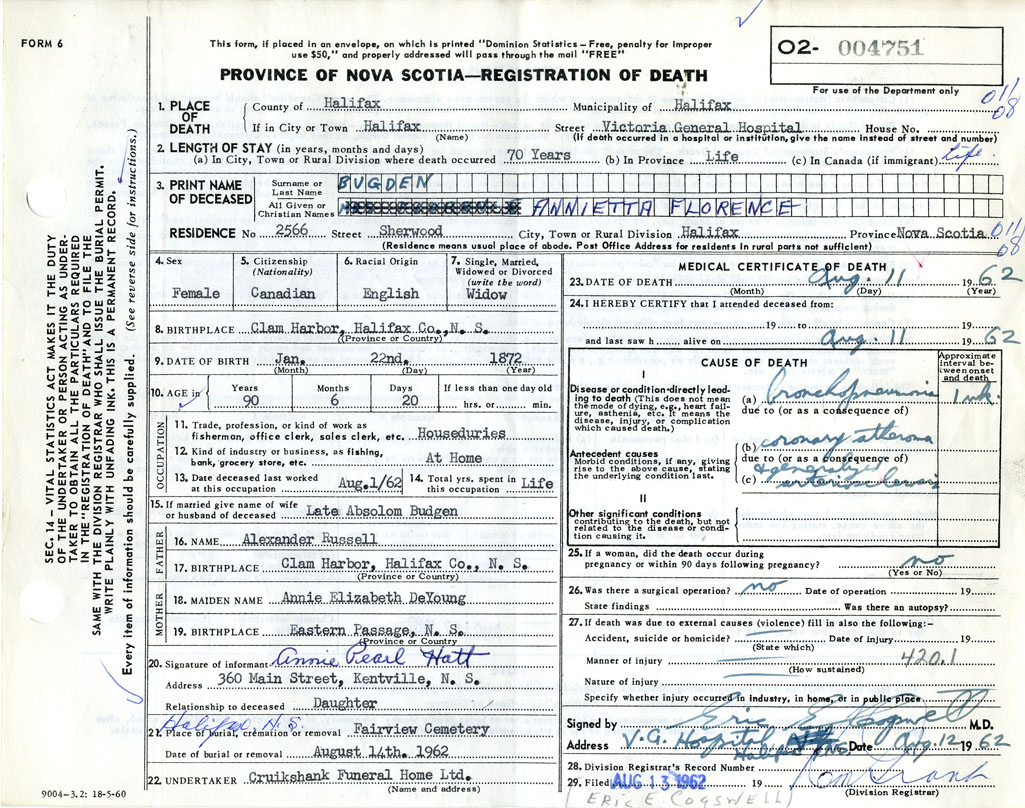 FORM 6
This form, if placed in an envelope, on which is printed "Dominion Statistics – Free, penalty for improper
use $50," and properly addressed will pass through the mail "FREE"
PROVINCE OF NOVA SCOTIA—REGISTRATION OF DEATH
02- 004751
For use of the Department only
011/08
1. PLACE OF DEATH
County of Halifax Municipality of Halifax
If in City or Town Halifax Street Victoria General Hospital House No.
(Name) (If death occurred in a hospital or institution, give the name instead of street and number)
2. LENGTH OF STAY (in years, months and days)
(a) In City, Town or Rural Division where death occurred 70 Years (b) In Province Life (c) In Canada (if immigrant) Life
3. PRINT NAME OF DECEASED
Surname or Last Name BUGDEN
All Given or Christian Names ANNIETTA FLORENCE
RESIDENCE No 2566 Street Sherwood City, Town or Rural Division Halifax Province Nova Scotia 011/08
(Residence means usual place of abode. Post Office Address for residents in rural parts not sufficient)
4. Sex
Female
5. Citizenship
(Nationality)
Canadian
6. Racial Origin
English
7. Single, Married,
Widowed or Divorced
(write the word)
Widow
8. BIRTHPLACE Clam Harbor, Halifax Co., N. S.
(Province or Country)
9. DATE OF BIRTH Jan. 22nd. 1872
(Month) (Day) (Year)
10. AGE in
Years Months Days If less than one day old
90 6 20 hrs. or min.
OCCUPATION
11. Trade, profession, or kind of work as
fisherman, office clerk, sales clerk, etc. Houseduries
12. Kind of industry or business, as fishing,
bank, grocery store, etc. At Home
13. Date deceased last worked
at this occupation Aug.1/62
14. Total yrs. spent in
this occupation Life
15. If married give name of wife
or husband of deceased Late Absolom Budgen
FATHER
16. NAME Alexander Russell
17. BIRTHPLACE Clam Harbor, Halifax Co., N. S.
(Province or Country)
MOTHER
18. MAIDEN NAME Annie Elizabeth DeYoung
19. BIRTHPLACE Eastern Passage, N. S.
(Province or Country)
20. Signature of informant Annie Pearl Hatt
Address 360 Main Street, Kentville, N. S.
Relationship to deceased Daughter
Halifax, N.S.
21. Place of burial, cremation or removal Fairview Cemetery
Date of burial or removal August 14th. 1962
22. UNDERTAKER Cruikshank Funeral Home Ltd.
(Name and address)
9004–3.2: 18-5-60
MEDICAL CERTIFICATE OF DEATH
23. DATE OF DEATH Aug. 11 1962
(Month) (Day) (Year)
24. I HEREBY CERTIFY that I attended deceased from:
19 to 19
and last saw h alive on Aug. 11 1962
CAUSE OF DEATH
Approximate
interval be-
tween onset
and death
I
Disease or condition directly lead-
ing to death (This does not mean
the mode of dying, e.g., heart fail-
ure, asthenia, etc. It means the
disease, injury, or complication
which caused death.)
(a) bronchopneumonia 1 wk.
due to (or as a consequence of)
Antecedent causes
Morbid conditions, if any, giving
rise to the above cause, stating
the underlying condition last.
(b) coronary atheroma
due to (or as a consequence of)
& generalized
(c) arteriosclerosis
II
Other significant conditions
contributing to the death, but not
related to the disease or condi-
tion causing it.
25. If a woman, did the death occur during
pregnancy or within 90 days following pregnancy? no
(Yes or No)
26. Was there a surgical operation? no Date of operation 19
State findings Was there an autopsy?
27. If death was due to external causes (violence) fill in also the following:–
Accident, suicide or homicide? Date of injury 19
(State which)
Manner of injury 420.1
(How sustained)
Nature of injury
Specify whether injury occurred in industry, in home, or in public place
Signed by Eric E. Cogswell M.D.
Address V.G. Hospital Halifax NS Date Aug. 12 1962
28. Division Registrar's Record Number
29. Filed AUG 13 1962 19
(Division Registrar)
(ERIC E. COGSWELL)
SEC. 14 – VITAL STATISTICS ACT MAKES IT THE DUTY
OF THE UNDERTAKER OR PERSON ACTING AS UNDER-
TAKER TO OBTAIN ALL THE PARTICULARS REQUIRED
IN THE "REGISTRATION OF DEATH" AND TO FILE THE
SAME WITH THE DIVISION REGISTRAR WHO SHALL ISSUE THE BURIAL PERMIT.
WRITE PLAINLY WITH UNFADING INK–THIS IS A PERMANENT RECORD.
Every item of information should be carefully supplied. (See reverse side for instructions.)